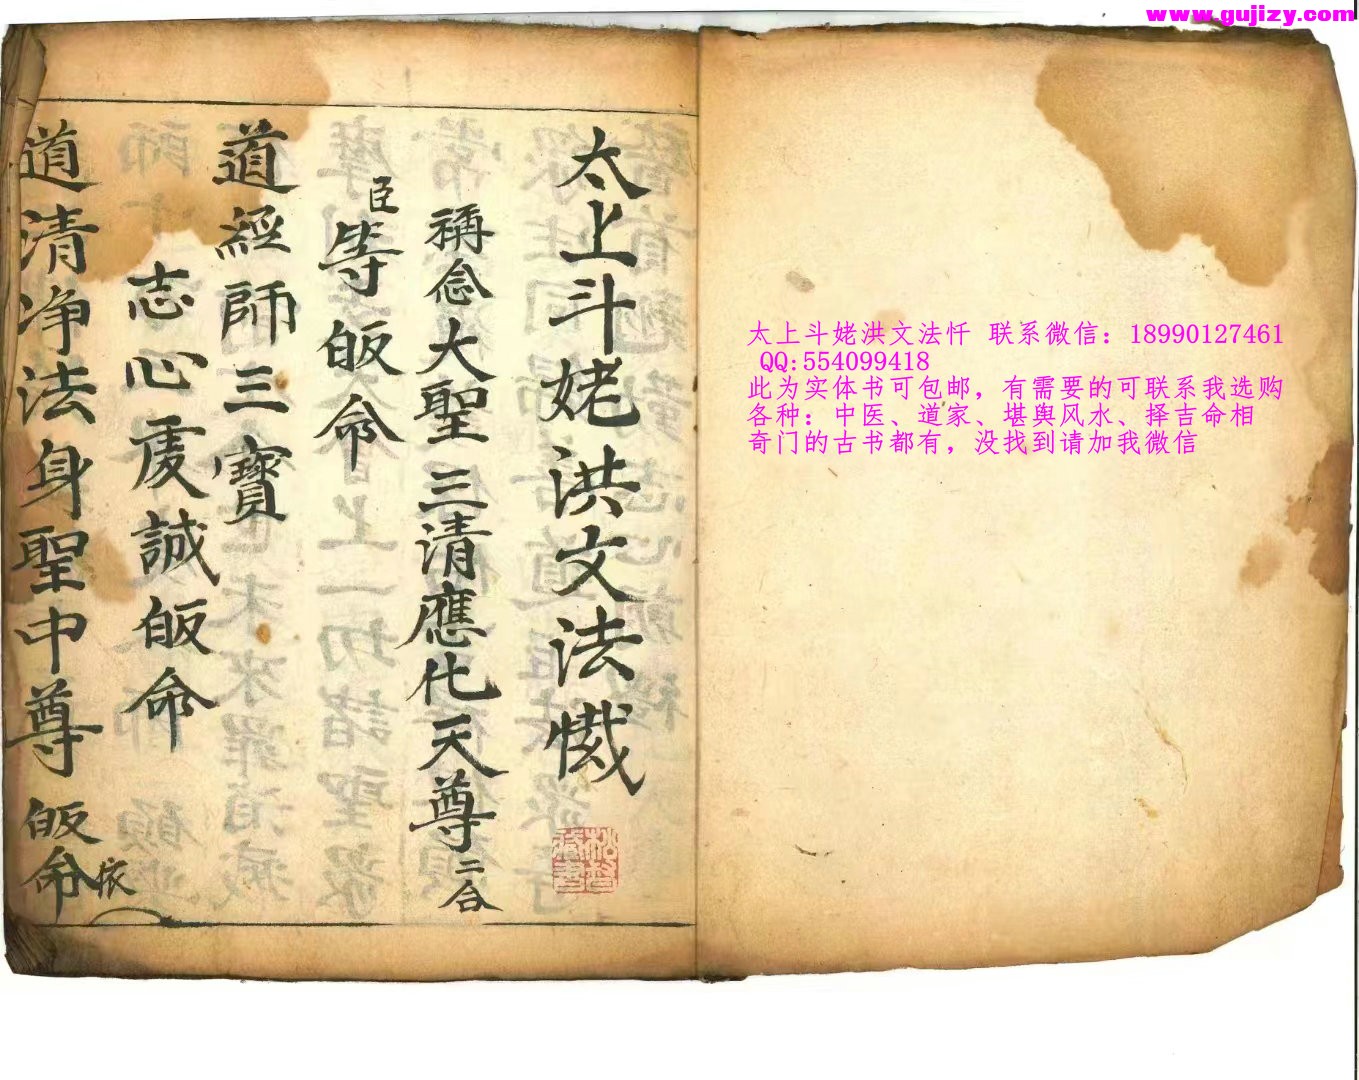 www.gujizy.com
太上斗姥洪文法忏 联系微信：18990127461
QQ:554099418
此为实体书可包邮，有需要的可联系我选购
各种：中医、道家、堪舆风水、择吉命相
奇门的古书都有，没找到请加我微信
太上斗姥洪文法懺
稱念大聖三清應化天尊二合
臣等皈命
道經師三寶
志心虔誠皈命
道清净法身聖中尊皈命依